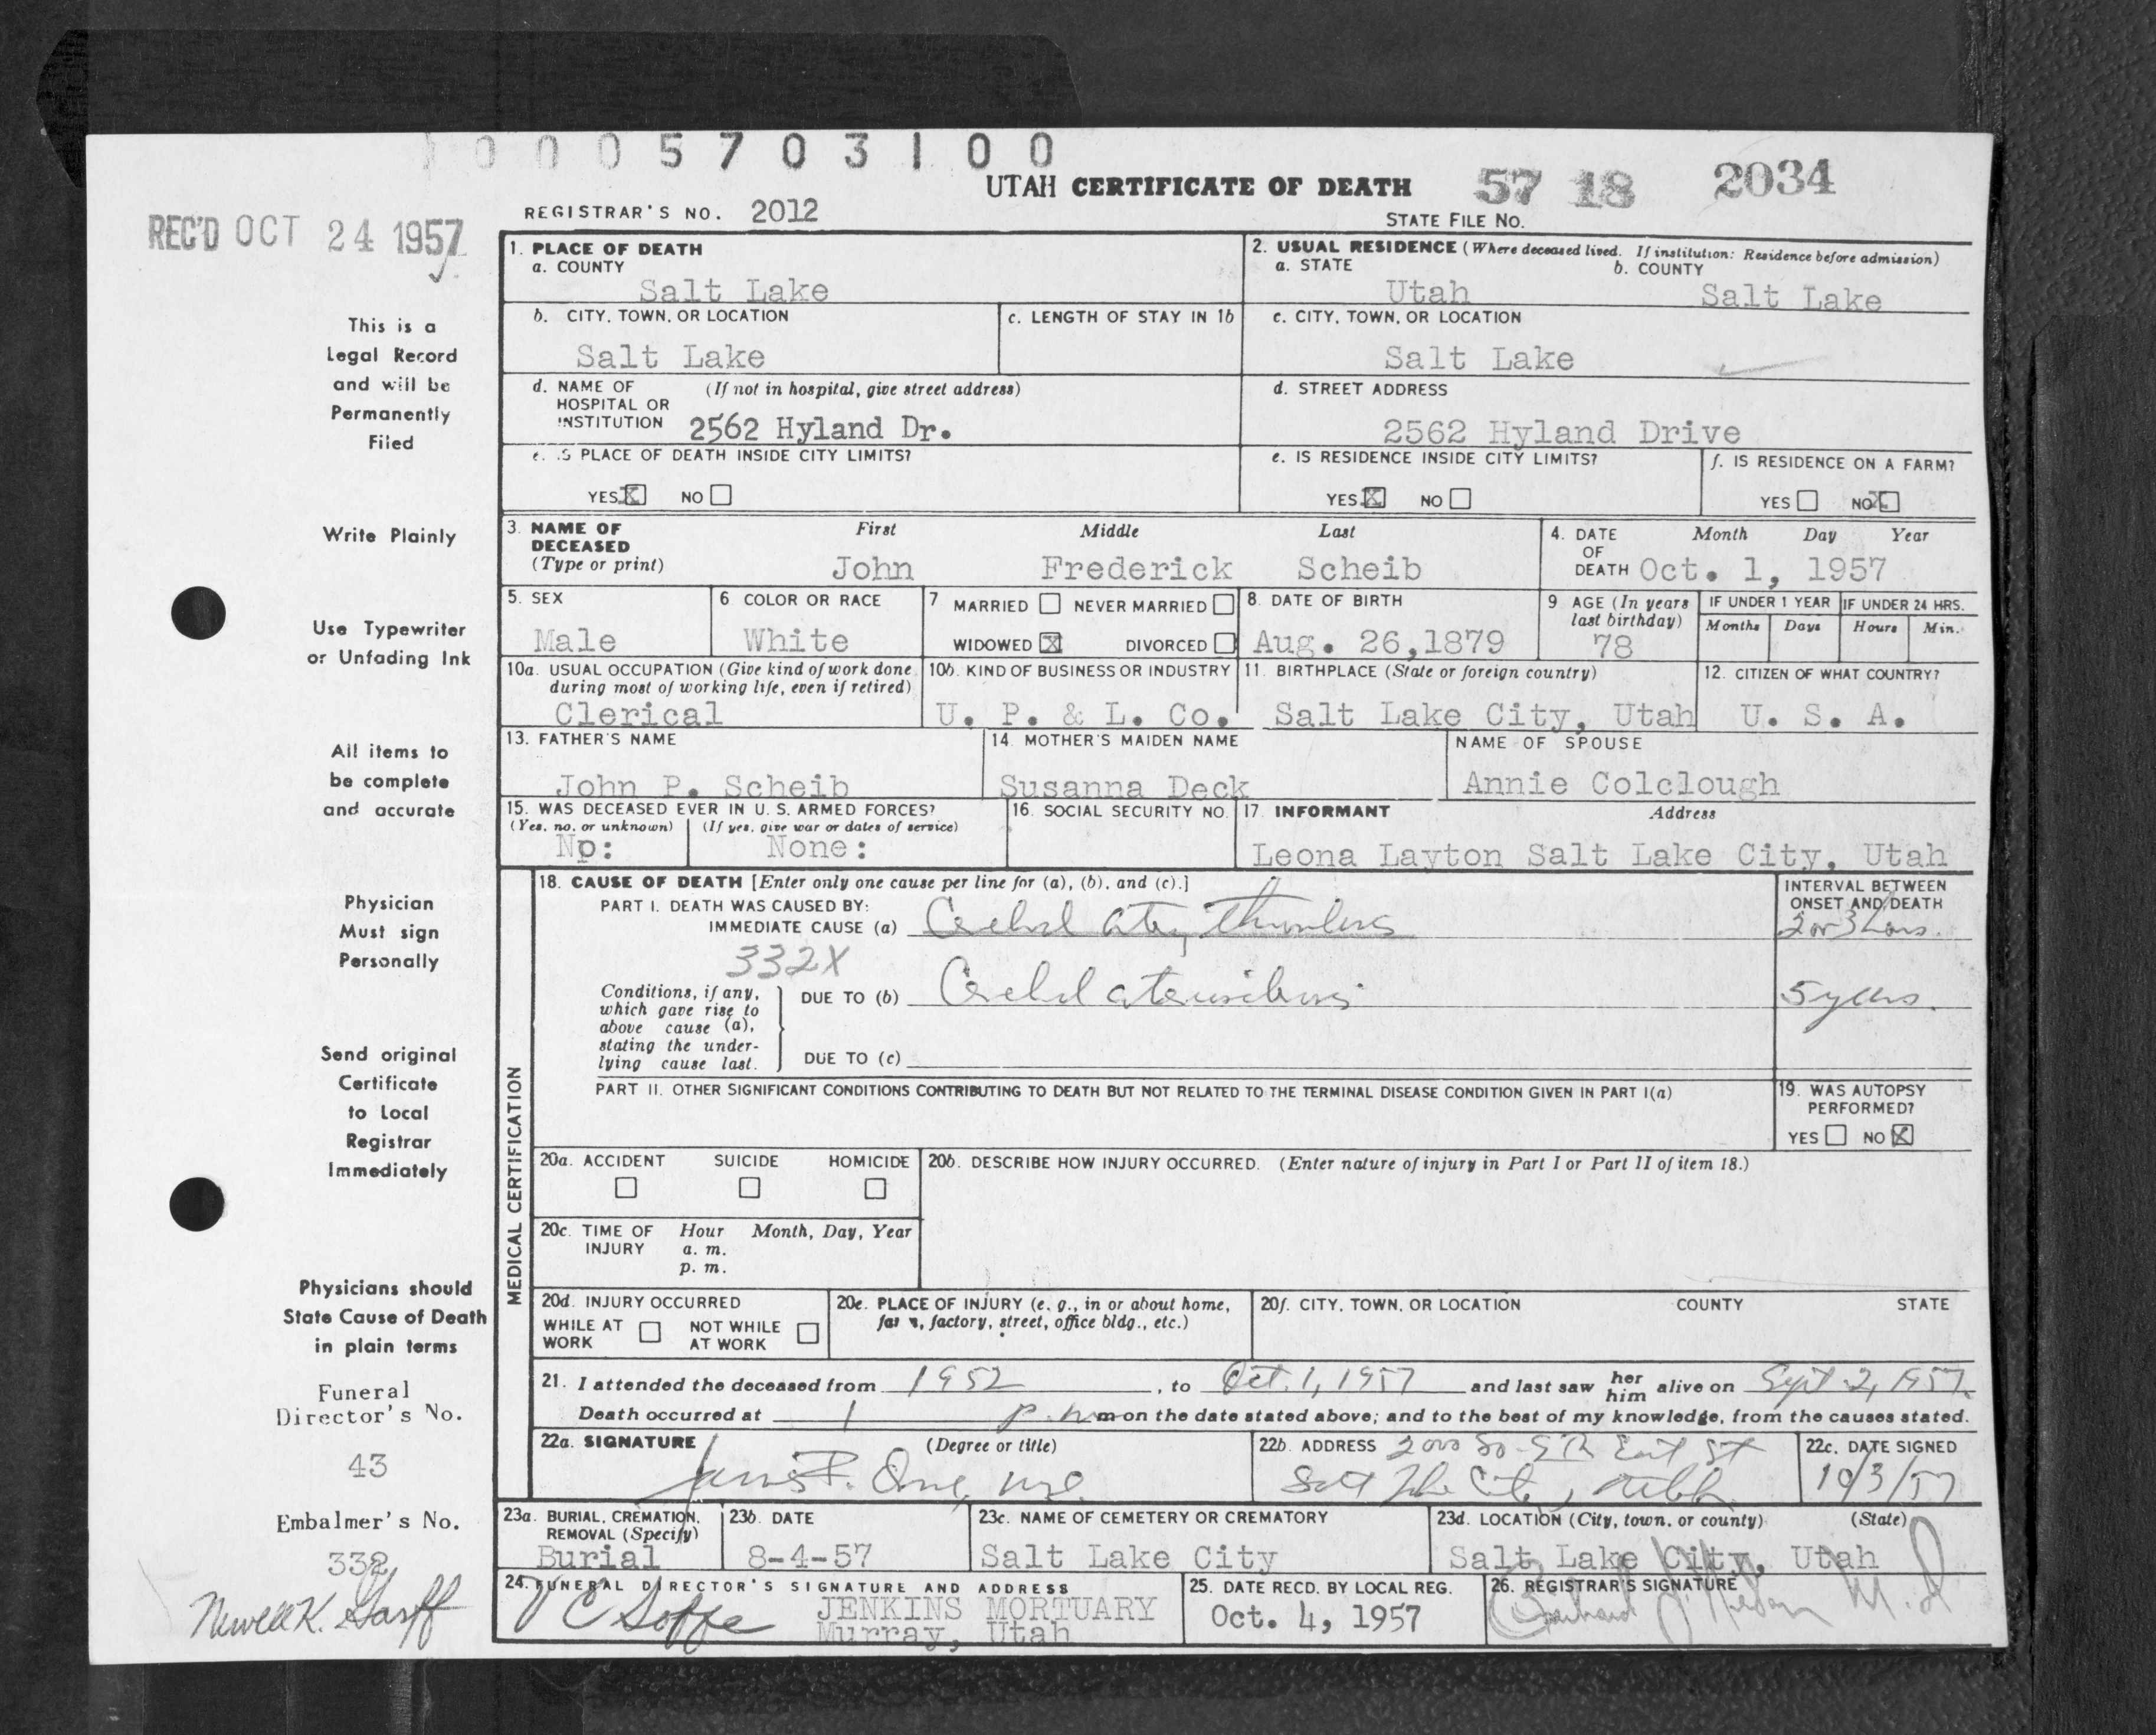 0 0 0 5 7 0 3 1 0 0
UTAH CERTIFICATE OF DEATH 57 18 2034
REGISTRAR'S NO. 2012
STATE FILE NO.
REC'D OCT 24 1957
1. PLACE OF DEATH
a. COUNTY
Salt Lake
2. USUAL RESIDENCE (Where deceased lived. If institution: Residence before admission)
a. STATE b. COUNTY
Utah Salt Lake
b. CITY, TOWN, OR LOCATION
Salt Lake
c. LENGTH OF STAY IN 1b
c. CITY, TOWN, OR LOCATION
Salt Lake
d. NAME OF (If not in hospital, give street address)
HOSPITAL OR
INSTITUTION 2562 Hyland Dr.
d. STREET ADDRESS
2562 Hyland Drive
e. IS PLACE OF DEATH INSIDE CITY LIMITS?
YES X NO
e. IS RESIDENCE INSIDE CITY LIMITS?
YES X NO
f. IS RESIDENCE ON A FARM?
YES NO X
3. NAME OF DECEASED (Type or print)
First Middle Last
John Frederick Scheib
4. DATE OF DEATH Month Day Year
Oct. 1, 1957
5. SEX
Male
6 COLOR OR RACE
White
7 MARRIED NEVER MARRIED
WIDOWED X DIVORCED
8. DATE OF BIRTH
Aug. 26,1879
9 AGE (In years last birthday)
78
IF UNDER 1 YEAR IF UNDER 24 HRS.
Months Days Hours Min.
10a. USUAL OCCUPATION (Give kind of work done
during most of working life, even if retired)
Clerical
10b. KIND OF BUSINESS OR INDUSTRY
U. P. & L. Co.
11. BIRTHPLACE (State or foreign country)
Salt Lake City, Utah
12. CITIZEN OF WHAT COUNTRY?
U. S. A.
13. FATHER'S NAME
John P. Scheib
14. MOTHER'S MAIDEN NAME
Susanna Deck
NAME OF SPOUSE
Annie Colclough
15. WAS DECEASED EVER IN U. S. ARMED FORCES?
(Yes, no, or unknown) (If yes, give war or dates of service)
No: None:
16. SOCIAL SECURITY NO.
17. INFORMANT Address
Leona Layton Salt Lake City, Utah
MEDICAL CERTIFICATION
18. CAUSE OF DEATH [Enter only one cause per line for (a), (b), and (c).]
PART I. DEATH WAS CAUSED BY:
IMMEDIATE CAUSE (a)
332X
Conditions, if any,
which gave rise to
above cause (a),
stating the under-
lying cause last.
DUE TO (b)
DUE TO (c)
INTERVAL BETWEEN
ONSET AND DEATH
2 or 3 hours.
5 years.
PART II. OTHER SIGNIFICANT CONDITIONS CONTRIBUTING TO DEATH BUT NOT RELATED TO THE TERMINAL DISEASE CONDITION GIVEN IN PART I(a)
19. WAS AUTOPSY
PERFORMED?
YES NO X
20a. ACCIDENT SUICIDE HOMICIDE
20b. DESCRIBE HOW INJURY OCCURRED. (Enter nature of injury in Part I or Part II of item 18.)
20c. TIME OF INJURY Hour Month, Day, Year
a. m.
p. m.
20d. INJURY OCCURRED
WHILE AT WORK NOT WHILE AT WORK
20e. PLACE OF INJURY (e. g., in or about home,
farm, factory, street, office bldg., etc.)
20f. CITY, TOWN, OR LOCATION COUNTY STATE
21. I attended the deceased from 1952, to Oct. 1, 1957 and last saw her him alive on Sept 2, 1957.
Death occurred at 1 p. m on the date stated above; and to the best of my knowledge, from the causes stated.
22a. SIGNATURE (Degree or title)
22b. ADDRESS 2000 So East St
Salt Lake City, Utah
22c. DATE SIGNED
10/3/57
23a. BURIAL, CREMATION,
REMOVAL (Specify)
Burial
23b. DATE
8-4-57
23c. NAME OF CEMETERY OR CREMATORY
Salt Lake City
23d. LOCATION (City, town, or county) (State)
Salt Lake City, Utah
24. FUNERAL DIRECTOR'S SIGNATURE AND ADDRESS
V C Soffe JENKINS MORTUARY
Murray, Utah
25. DATE RECD. BY LOCAL REG.
Oct. 4, 1957
26. REGISTRAR'S SIGNATURE
M. D
This is a
Legal Record
and will be
Permanently
Filed
Write Plainly
Use Typewriter
or Unfading Ink
All items to
be complete
and accurate
Physician
Must sign
Personally
Send original
Certificate
to Local
Registrar
Immediately
Physicians should
State Cause of Death
in plain terms
Funeral
Director's No.
43
Embalmer's No.
332
Newell K. Garff